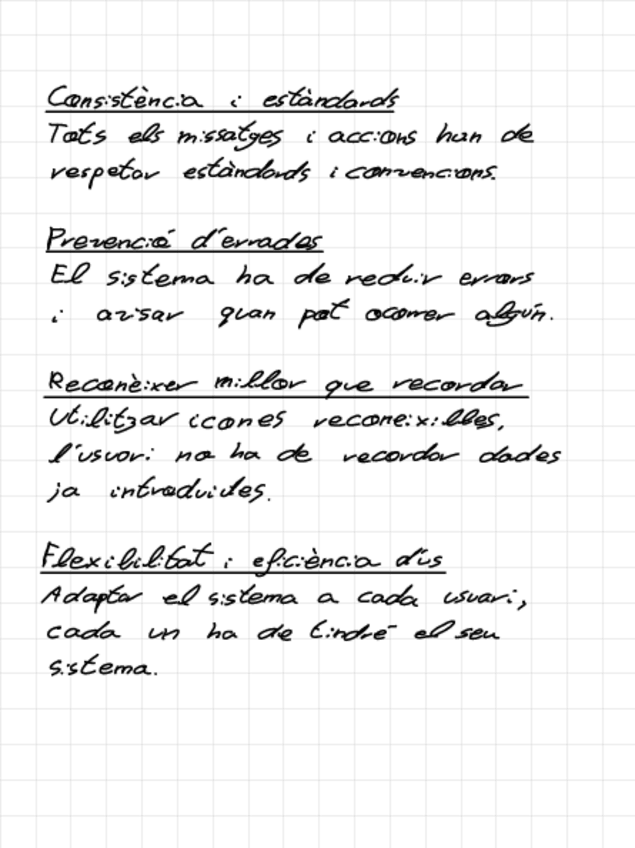 Consistència i estàndards
Tots els missatges i accions han de
respetar estàndards i convencions.
Prevenció d'errades
El sistema ha de reduir errors
i avisar quan pot ocorrer algún.
Reconèixer millor que recordar
Utilitzar icones reconeixibles,
l'usuari no ha de recordar dades
ja introduides.
Flexibilitat i eficiència d'ús
Adaptar el sistema a cada usuari,
cada un ha de tindré el seu
sistema.